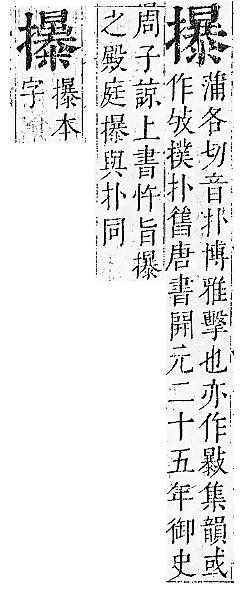 㩧
蒲各切音扑博雅擊也亦作集韻或
作撲扑舊唐書開元二十五年御史
周子諒上書忤旨㩧
之殿庭㩧與扑同
㩧本
字